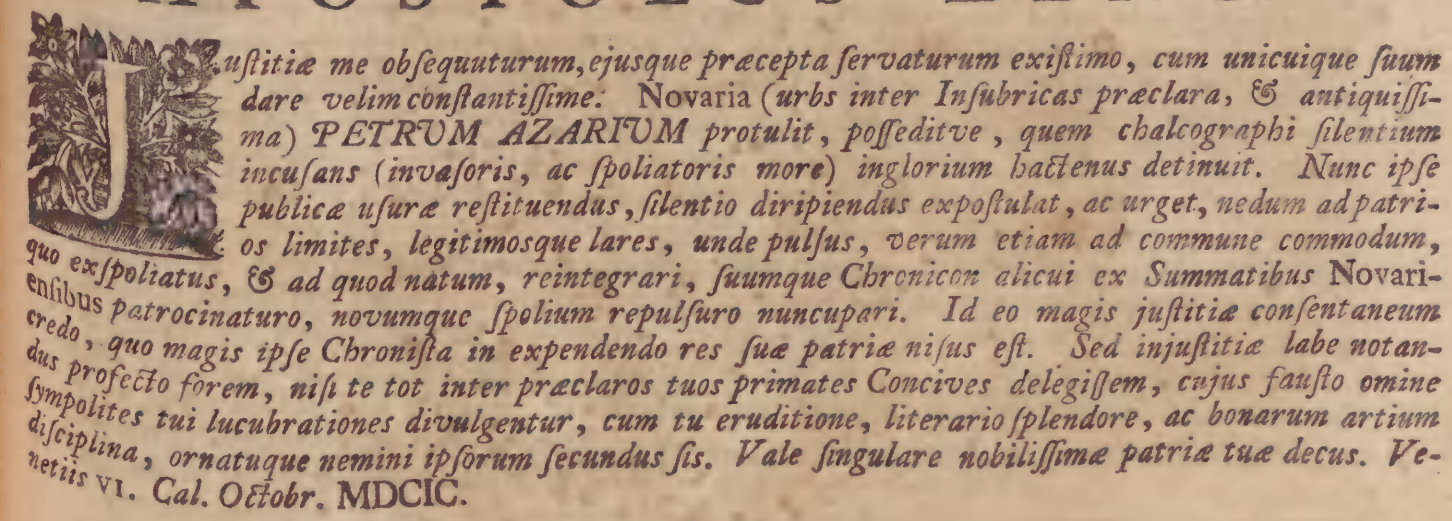 Juſtitiæ me obſequuturum, ejusque præcepta ſervaturum exiſtimo, cum unicuique ſuum
dare velim conſtantiſſime. Novaria (urbs inter Inſubricas præclara, & antiquiſſi-
ma) PETRUM AZARIUM protulit, poſſeditve, quem chalcographi ſilentium
incuſans (invaſoris, ac ſpoliatoris more) inglorium hactenus detinuit. Nunc ipſe
publicæ uſuræ reſtituendus, ſilentio diripiendus expoſtulat, ac urget, nedum ad patri-
os limites, legitimosque lares, unde pulſus, verum etiam ad commune commodum,
quo exſpoliatus, & ad quod natum, reintegrari, ſuumque Chronicon alicui ex Summatibus Novari-
enſibus patrocinaturo, novumque ſpolium repulſuro nuncupari. Id eo magis juſtitiæ conſentaneum
credo, quo magis ipſe Chroniſta in expendendo res ſuæ patriæ niſus eſt. Sed injuſtitiæ labe notan-
dus profecto forem, niſi te tot inter præclaros tuos primates Concives delegiſſem, cujus fauſto omine
ſympolites tui lucubrationes divulgentur, cum tu eruditione, literario ſplendore, ac bonarum artium
diſciplina, ornatuque nemini ipſorum ſecundus ſis. Vale ſingulare nobiliſſimæ patriæ tuæ decus. Ve-
netiis VI. Cal. Octobr. MDCIC.